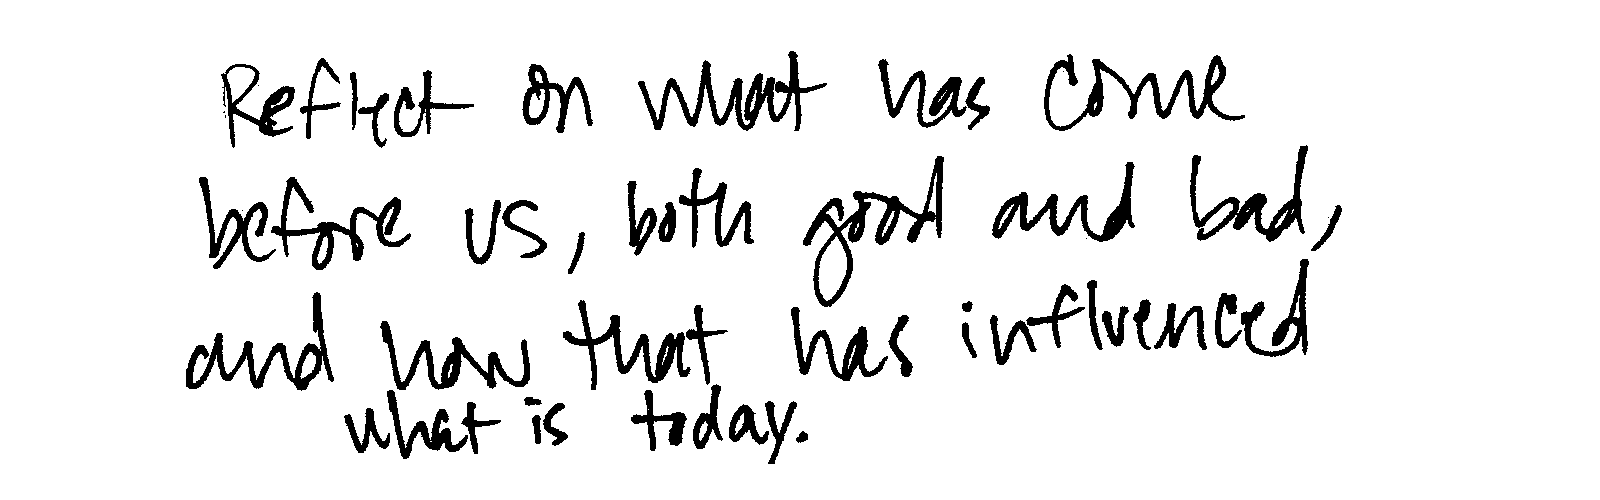 Reflect on what has come
before us, both good and bad,
and how that has influenced
what is today.